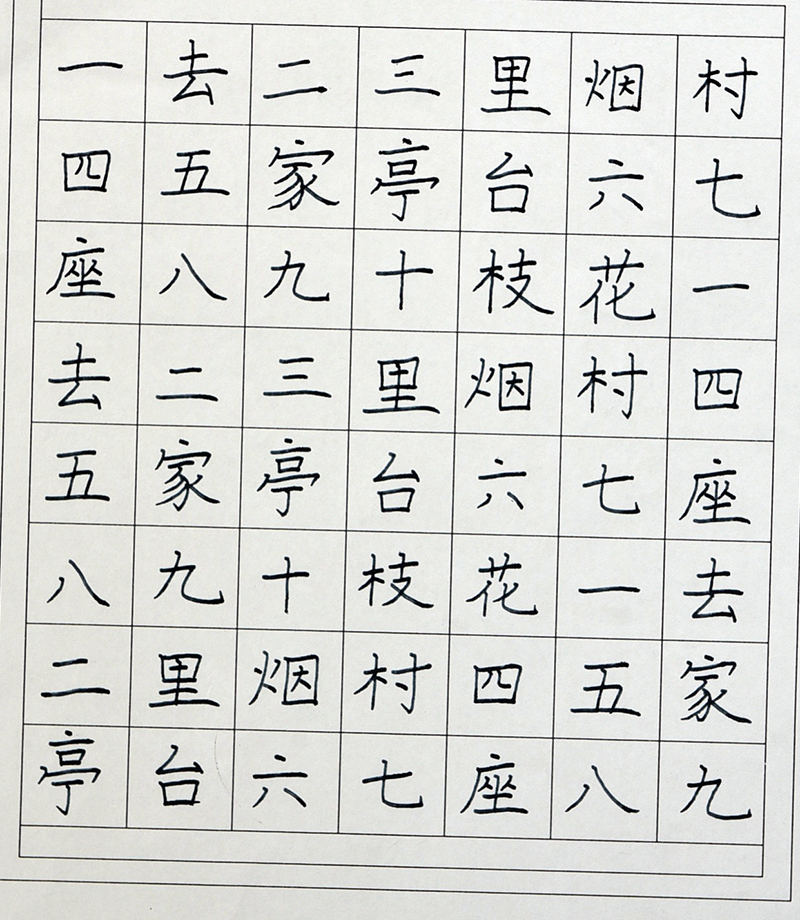 一去二三里烟村
四五家亭台六七
座八九十枝花一
去二三里烟村四
五家亭台六七座
八九十枝花一去
二里烟村四五家
亭台六七座八九